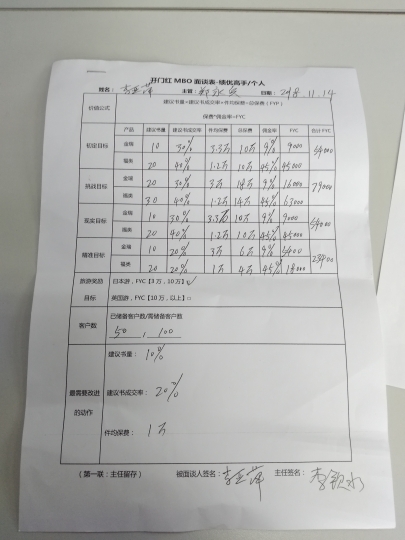 开门红 MBO 面谈表-绩优高手/个人
姓名： 主管： 日期：2018.11.14
价值公式 建议书量×建议书成交率×件均保费=总保费（FYP）
保费*佣金率=FYC
产品 建议书量 建议书成交率 件均保费 总保费 佣金率 FYC 合计FYC
初定目标 金瑞 10 30% 3.3万 10万 9% 9000 54000
福类 20 40% 1.2万 10万 45% 45000
挑战目标 金瑞 20 30% 3万 18万 9% 16000 79000
福类 30 40% 1.2万 14万 45% 63000
现实目标 金瑞 10 30% 3.3万 10万 9% 9000 54000
福类 20 40% 1.2万 10万 45% 45000
精准目标 金瑞 10 20% 3万 6万 9% 5400 23400
福类 20 20% 1万 4万 45% 18000
旅游奖励 日本游，FYC【3万，10万】✓
目标 英国游，FYC【10万，以上】□
客户数 已储备客户数/需储备客户数
50 , 100
建议书量：10%
最需要改进的动作 建议书成交率：20%
件均保费：1万
（第一联：主任留存） 被面谈人签名： 主任签名：